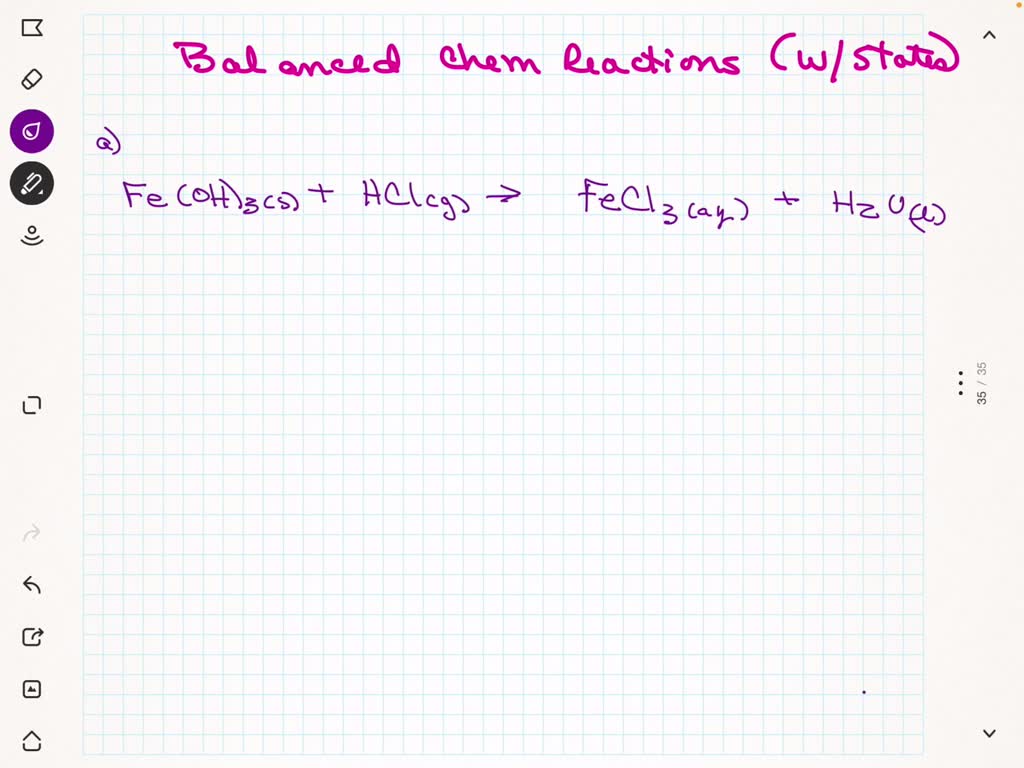 Balanced Chem Reactions (w/states)
a)
Fe(OH)3(s) + HCl(g) → FeCl3(aq) + H2O(l)
35 / 35